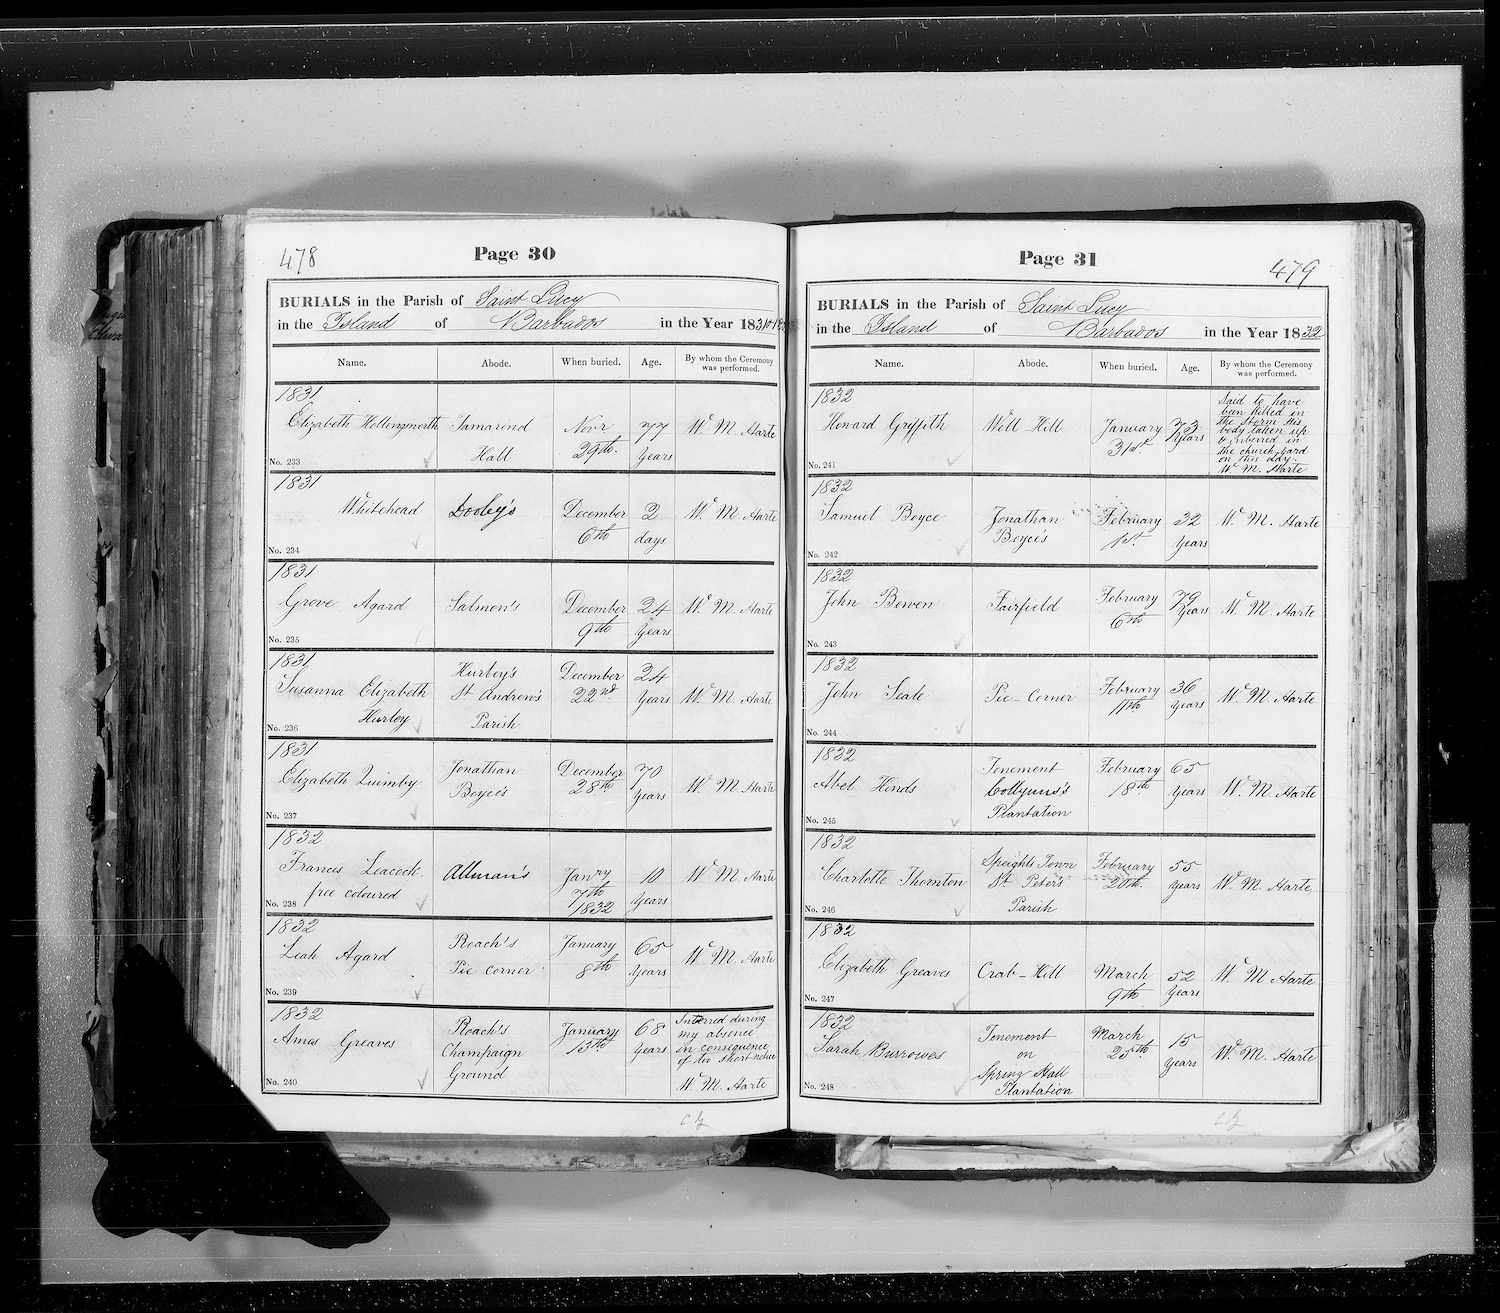 478
Page 30
BURIALS in the Parish of Saint Lucy
in the Island of Barbados in the Year 1831
Name. Abode. When buried. Age. By whom the Ceremony was performed.
1831
Elizabeth Hollingsworth Tamarind Novr 77 Wm. M. Harte
Hall 29th. Years
No. 233
1831
Whitehead Dooley's December 2 Wm. M. Harte
6th days
No. 234
1831
Grove Agard Salmon's December 24 Wm. M. Harte
9th Years
No. 235
1831
Susanna Elizabeth Hurley's December 24
Hurley St Andrew's 22nd Years Wm. M. Harte
Parish
No. 236
1831
Elizabeth Quimby Jonathan December 70 Wm. M. Harte
Boyce's 28th Years
No. 237
1832
Frances Leacock Allman's Janry 10 Wm. M. Harte
free coloured 7th Years
1832
No. 238
1832
Leah Agard Roach's January 65 Wm. M. Harte
Pie corner 8th Years
No. 239
1832
Amos Greaves Roach's January 68 Interred during
Champaign 13th Years my absence
Ground in consequence
of too short notice
Wm. M. Harte
No. 240
479
Page 31
BURIALS in the Parish of Saint Lucy
in the Island of Barbados in the Year 1832
Name. Abode. When buried. Age. By whom the Ceremony was performed.
1832
Howard Griffith Well Hill January 73 Said to have
31st. Years been killed in
the storm His
body taken up
& interred in
the church yard
on this day.
Wm. M. Harte
No. 241
1832
Samuel Boyce Jonathan February 32 Wm. M. Harte
Boyce's 1st. Years
No. 242
1832
John Bowen Fairfield February 79 Wm. M. Harte
6th Years
No. 243
1832
John Seale Pie-Corner February 36 Wm. M. Harte
11th Years
No. 244
1832
Abel Hinds Tenement February 65 Wm. M. Harte
Collymus's 18th Years
Plantation
No. 245
1832
Charlotte Thornton Speights Town February 55 Wm. M. Harte
St. Peter's 20th. Years
Parish
No. 246
1832
Elizabeth Greaves Crab-Hill March 52 Wm. M. Harte
9th Years
No. 247
1832
Sarah Burrowes Tenement March 15 Wm. M. Harte
on 25th Years
Spring Hall
Plantation
No. 248